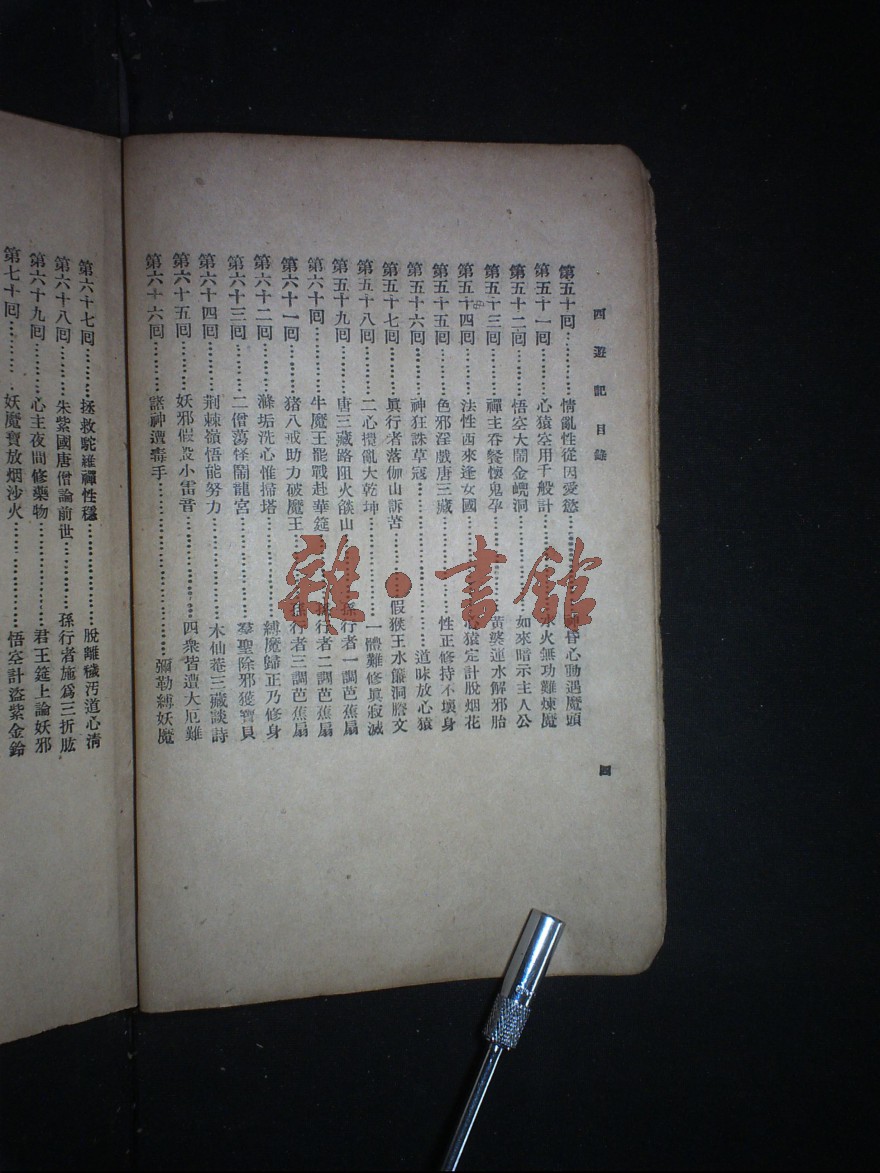 西遊記目錄
四
第五十回…………情亂性從因愛慾…………昏心動遇魔頭
第五十一回………心猿空用千般計…………水火無功難煉魔
第五十二回………悟空大鬧金㠋洞…………如來暗示主人公
第五十三回………禪主吞餐懷鬼孕…………黃婆運水解邪胎
第五十四回………法性西來逢女國…………心猿定計脫烟花
第五十五回………色邪淫戲唐三藏…………性正修持不壞身
第五十六回………神狂誅草寇…………道昧放心猿
第五十七回………眞行者落伽山訴苦…………假猴王水簾洞謄文
第五十八回………二心攪亂大乾坤…………一體難修眞寂滅
第五十九回………唐三藏路阻火燄山…………孫行者一調芭蕉扇
第六十回…………牛魔王罷戰赴華筵…………孫行者二調芭蕉扇
第六十一回………猪八戒助力破魔王…………孫行者三調芭蕉扇
第六十二回………滌垢洗心惟掃塔…………縛魔歸正乃修身
第六十三回………二僧蕩怪鬧龍宮…………羣聖除邪獲寶貝
第六十四回………荆棘嶺悟能努力…………木仙菴三藏談詩
第六十五回………妖邪假設小雷音…………四衆皆遭大厄難
第六十六回………諸神遭毒手…………彌勒縛妖魔
第六十七回………拯救駝羅禪性穩…………脫離穢汚道心淸
第六十八回………朱紫國唐僧論前世…………孫行者施爲三折肱
第六十九回………心主夜間修藥物…………君王筵上論妖邪
第七十回…………妖魔寶放烟沙火…………悟空計盜紫金鈴
雜·書館